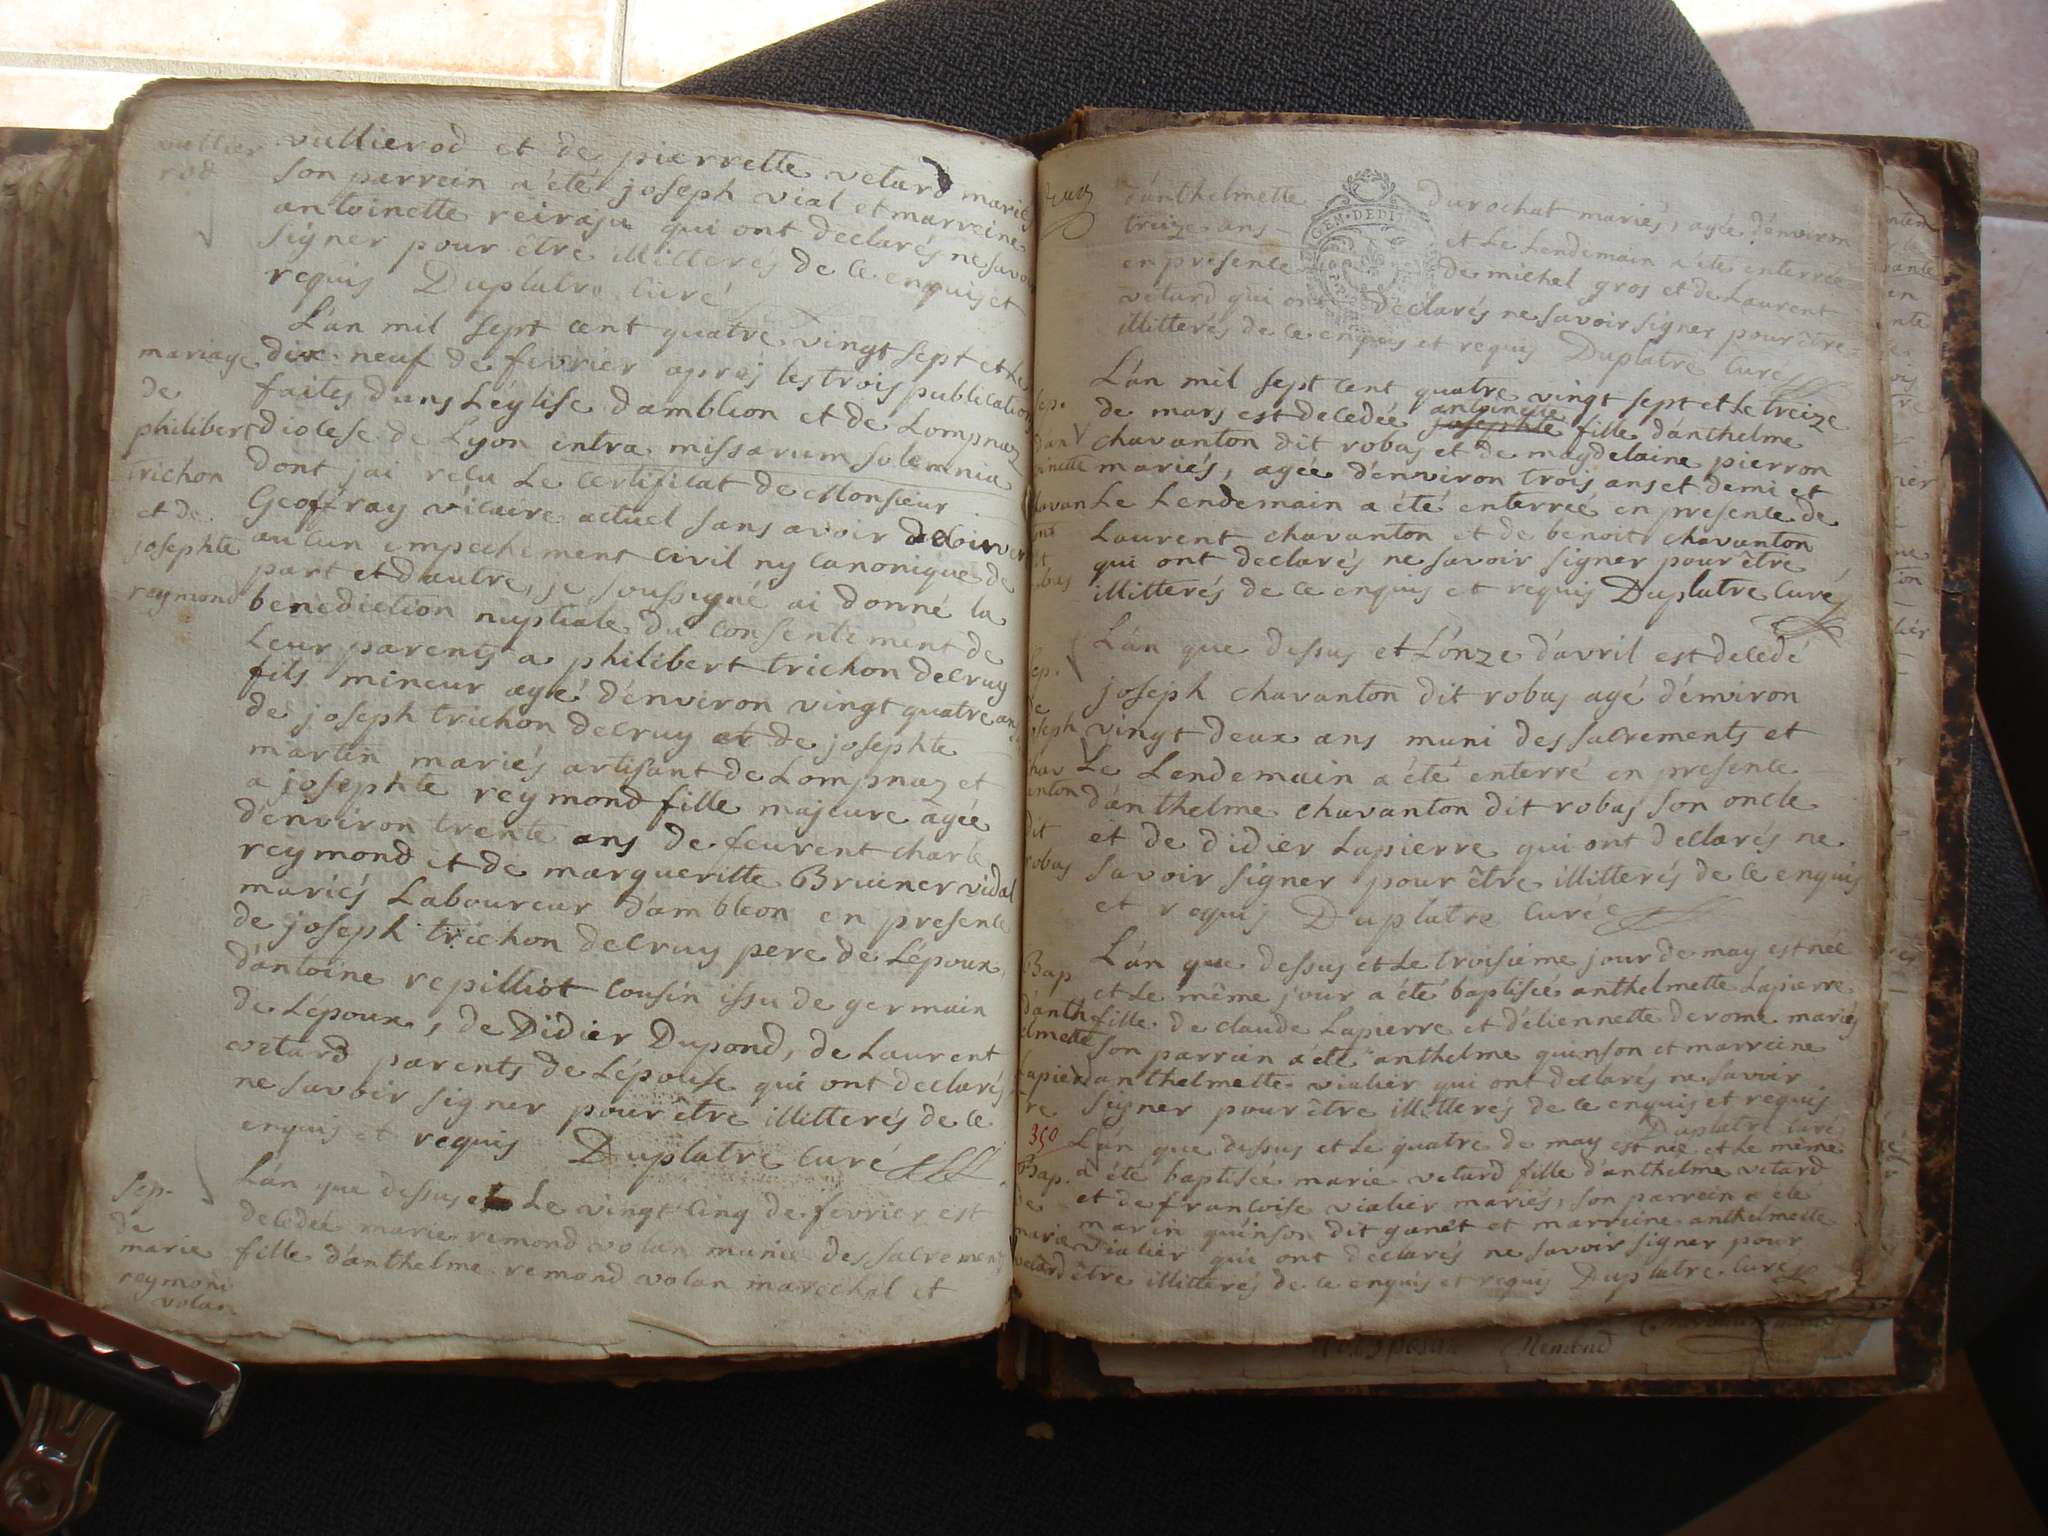 vullierod et de pierrette vetard mariés
son parrein a été joseph vial et marreine
antoinette reiraju qui ont declarés ne savoir
signer pour être illitterés de ce enquis et
requis Duplatre Curé
vullier
rod
L'an mil sept cent quatre vingt sept et le
dix neuf de fevrier après les trois publications
faites dans L'église d'ambléon et de Lompnaz
diocese de Lyon intra missarum solemnia
dont jai reçu Le Certificat de Monsieur
Geoffray vicaire actuel sans avoir decouvert
aucun empechement Civil ny Canonique de
part et d'autre, je soussigné ai donné la
benediction nuptiale du Consentement de
Leur parents a philibert trichon decruy
fils mineur agé d'environ vingt quatre ans
de joseph trichon decruy et de josephte
martin mariés artisant de Lompnaz et
a josephte reymond fille majeure agée
d'environ trente ans de feu charle
reymond et de margueritte Bruiner vidal
mariés Laboureur d'ambleon en presence
de joseph trichon decruy pere de L'époux
d'antoine repilliot Cousin issu de germain
de L'époux, de Didier Dupond, de Laurent
vetard parents de L'épouse qui ont declarés
ne savoir signer pour être illitterés de ce
enquis et requis Duplatre Curé
mariage
de
philibert
trichon
et de
josephte
reymond
L'an que dessus et Le vingt Cinq de fevrier est
decedée marie remond volan munie des sacrements
fille d'anthelme remond volan marechal et
sep.
de
marie
reymond
volan
d'anthelmette durochat mariés, agée d'environ
treize ans et Le Lendemain a été enterrée
en presence de michel gros et de Laurent
vetard qui ont declarés ne savoir signer pour être
illitterés de ce enquis et requis Duplatre Curé
GEM DEDI
L'an mil sept cent quatre vingt sept et Le treize
de mars est decedée josephte antoinette fille d'anthelme
chavanton dit robas et de magdelaine pierron
mariés, agée d'environ trois ans et demi et
Le Lendemain a été enterrée en presence de
Laurent chavanton et de benoit chavanton
qui ont declarés ne savoir signer pour être
illitterés de ce enquis et requis Duplatre Curé
sep.
L'an que dessus et L'onze d'avril est decedé
joseph chavanton dit robas agé d'environ
vingt deux ans muni des sacrements et
Le Lendemain a été enterré en presence
d'anthelme chavanton dit robas son oncle
et de didier Lapierre qui ont declarés ne
savoir signer pour être illitterés de ce enquis
et requis Duplatre Curé
sep.
de
joseph
chav
anton
dit
robas
L'an que dessus et Le troisiéme jour de may est née
et Le même jour a été baptisée anthelmette Lapierre
fille de claude Lapierre et d'étiennette derome mariés
son parrein a été anthelme quinson et marreine
anthelmette vialier qui ont declarés ne savoir
signer pour être illitterés de ce enquis et requis
Duplatre Curé
Bap
d'anth
elmette
Lapier
re
350
L'an que dessus et Le quatre de may est née et Le même
a été baptisée marie vetard fille d'anthelme vetard
et de francoise vialier mariés, son parrein a été
marin quinson dit ganet et marreine anthelmette
vialier qui ont declarés ne savoir signer pour
être illitterés de ce enquis et requis Duplatre Curé
Bap.
de
marie
vetard
Remond